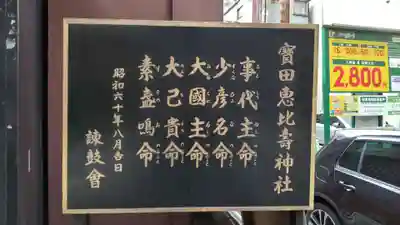 寶田恵比壽神社
事代主命
少彦名命
大國主命
大己貴命
素盞嗚命
昭和六十年八月吉日
諫鼓會
2,800